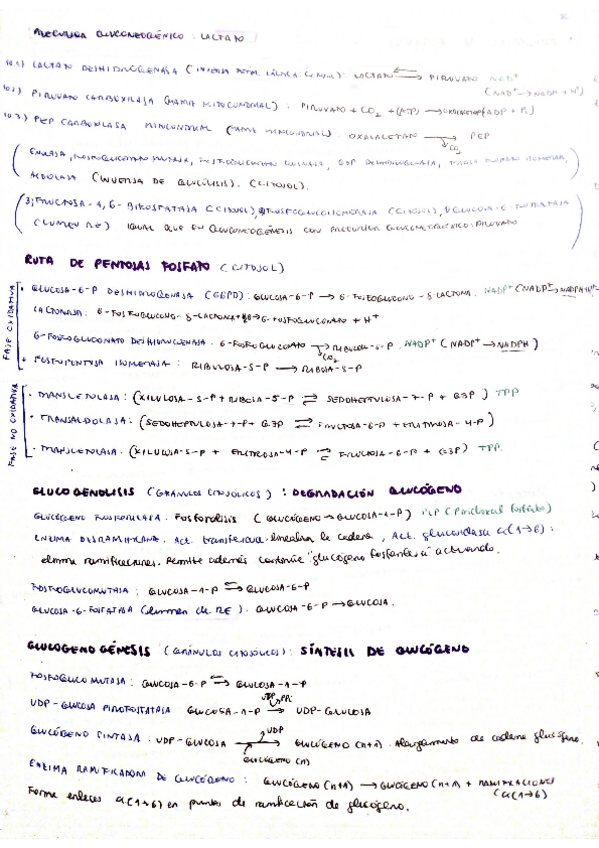 PRECURSOR GLUCONEOGÉNICO: LACTATO
10.1) LACTATO DESHIDROGENASA ( CITOSOL): LACTATO ⇌ PIRUVATO NAD+
(NAD+ → NADH + H+)
10.2) PIRUVATO CARBOXILASA (MATRIZ MITOCONDRIAL): PIRUVATO + CO2 + (ATP) → OXALACETATO (ADP + Pi)
10.3) PEP CARBOXILASA MITOCONDRIAL (MATRIZ MITOCONDRIAL): OXALACETATO → PEP
CO2
(ENOLASA, FOSFOGLICERATO MUTASA, FOSFOGLICERATO QUINASA, G3P DESHIDROGENASA, TRIOSA FOSFATO ISOMERASA,
ALDOLASA (INVERSA DE GLUCÓLISIS). (CITOSOL).
FRUCTOSA-1,6-BIFOSFATASA (CITOSOL), FOSFOGLUCOISOMERASA (CITOSOL), GLUCOSA-6-FOSFATASA
(LUMEN RE) IGUAL QUE EN GLUCONEOGÉNESIS CON PRECURSOR GLUCONEOGÉNICO: PIRUVATO
RUTA DE PENTOSAS FOSFATO (CITOSOL)
FASE OXIDATIVA
· GLUCOSA-6-P DESHIDROGENASA (G6PD): GLUCOSA-6-P → 6-FOSFOGLUCONO-δ-LACTONA. NADP+ (NADP+ → NADPH+H+
LACTONASA: 6-FOSFOGLUCONO-δ-LACTONA → 6-FOSFOGLUCONATO + H+
6-FOSFOGLUCONATO DESHIDROGENASA: 6-FOSFOGLUCONATO → RIBULOSA-5-P. NADP+ (NADP+ → NADPH)
CO2
· FOSFOPENTOSA ISOMERASA: RIBULOSA-5-P → RIBOSA-5-P
FASE NO OXIDATIVA
· TRANSCETOLASA: (XILULOSA-5-P + RIBOSA-5-P ⇌ SEDOHEPTULOSA-7-P + G3P) TPP
· TRANSALDOLASA: (SEDOHEPTULOSA-7-P + G3P ⇌ FRUCTOSA-6-P + ERITROSA-4-P)
· TRANSCETOLASA: (XILULOSA-5-P + ERITROSA-4-P ⇌ FRUCTOSA-6-P + G3P) TPP.
GLUCOGENOLISIS (GRÁNULOS CITOSÓLICOS): DEGRADACIÓN GLUCÓGENO
GLUCÓGENO FOSFORILASA: FOSFOROLISIS (GLUCÓGENO → GLUCOSA-1-P) PLP (Piridoxal fosfato)
ENZIMA DESRAMIFICANTE. Act. transferasa: linealiza la cadena, Act. glucosidasa α(1→6):
elimina ramificaciones. Permite además continúe "glucógeno fosforilasa" actuando.
FOSFOGLUCOMUTASA: GLUCOSA-1-P ⇌ GLUCOSA-6-P
GLUCOSA-6-FOSFATASA (lumen de RE). GLUCOSA-6-P → GLUCOSA.
GLUCOGENOGÉNESIS (GRÁNULOS CITOSÓLICOS): SÍNTESIS DE GLUCÓGENO
FOSFOGLUCOMUTASA: GLUCOSA-6-P ⇌ GLUCOSA-1-P
UTP PPi
UDP-GLUCOSA PIROFOSFATASA GLUCOSA-1-P → UDP-GLUCOSA
GLUCÓGENO SINTASA: UDP-GLUCOSA → UDP GLUCÓGENO (n+1). Alargamiento de cadena glucógeno.
GLUCÓGENO (n)
ENZIMA RAMIFICADORA DE GLUCÓGENO: GLUCÓGENO (n+1) → GLUCÓGENO (n+1) + RAMIFICACIONES
(α(1→6)
Forma enlaces α(1→6) en puntos de ramificación de glucógeno.